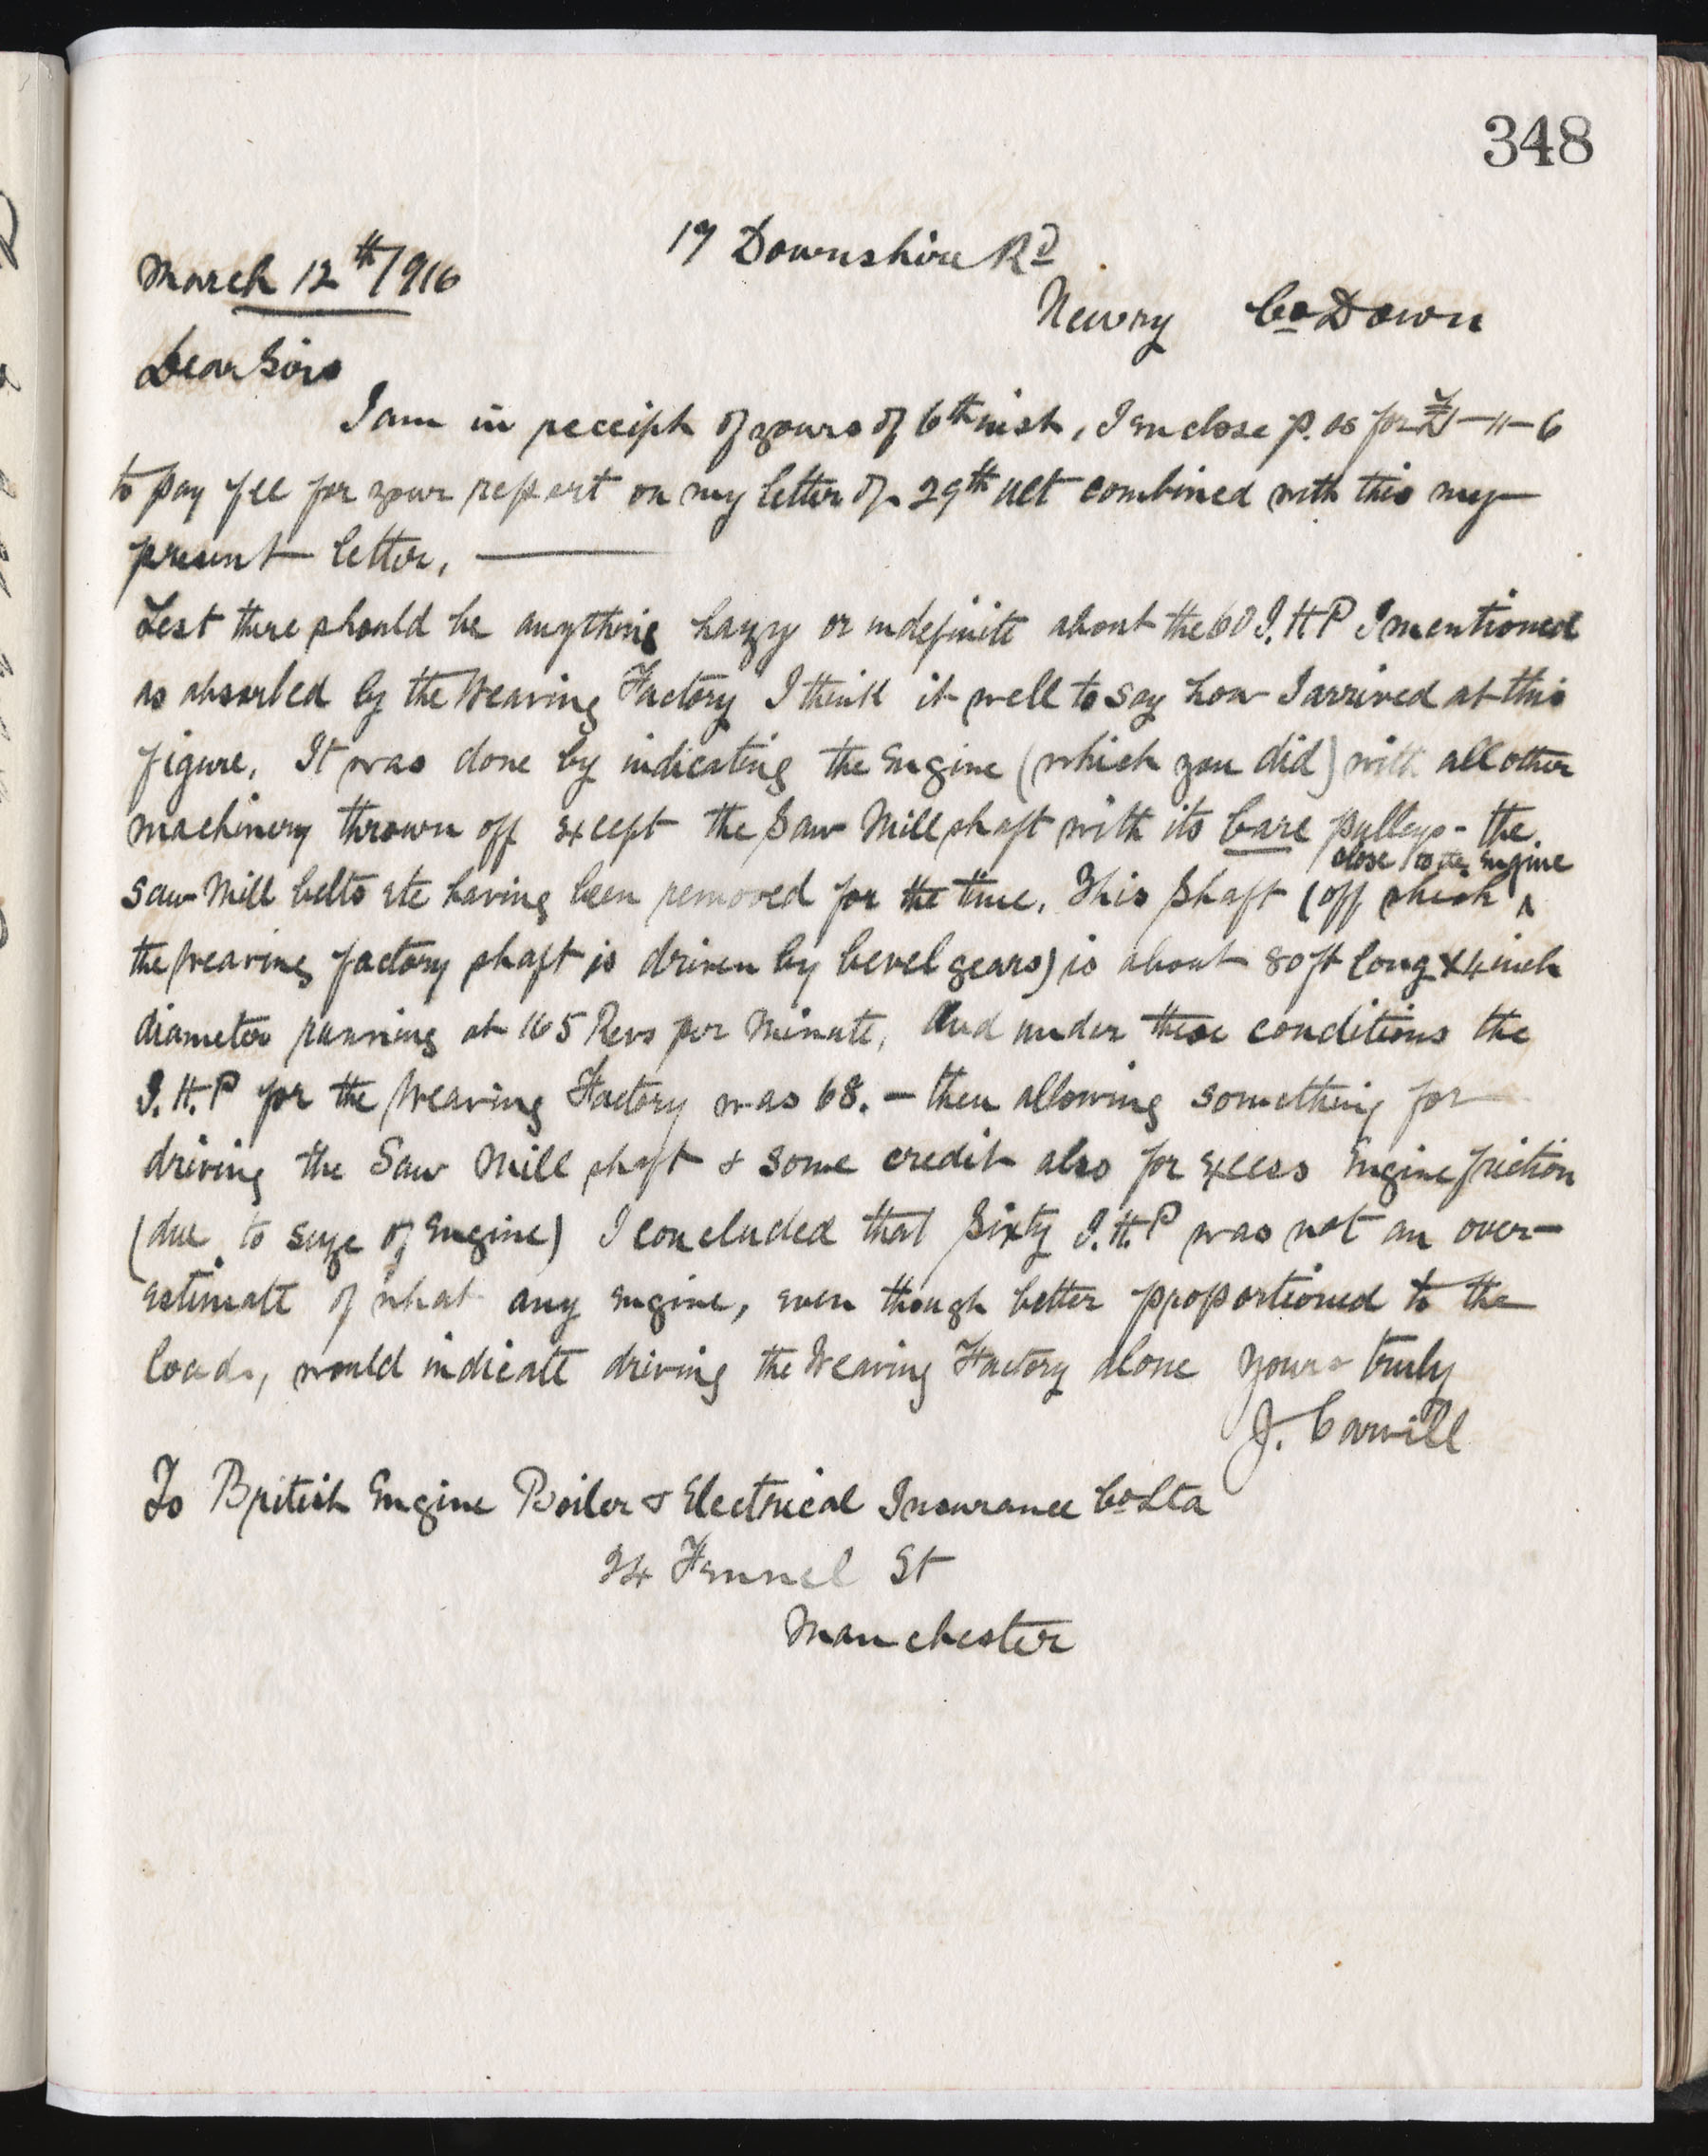 348
17 Downshire Rd
March 12th/1916
Newry Co Down
Dear Sirs
I am in receipt of yours of 6th inst, I enclose p. os for £1-11-6
to pay fee for your report on my letter of 29th ult combined with this my
present letter,
Lest there should be anything hazy or indefinite about the 60 I.H.P I mentioned
as absorbed by the Weaving Factory I think it well to say how I arrived at this
figure, It was done by indicating the Engine (which you did) with all other
machinery thrown off except the Saw Mill shaft with its bare pulleys - the
close to the Engine
Saw Mill belts etc having been removed for the time. This shaft (off which ^
the Weaving factory shaft is driven by bevel gears) is about 80 ft long x 4 inch
diameter running at 165 Revs per Minute, And under these conditions the
I.H.P for the Weaving Factory was 68. - then allowing something for
driving the Saw Mill shaft & some credit also for excess Engine friction
(due to size of Engine) I concluded that Sixty I.H.P was not an over-
estimate of what any engine, even though better proportioned to the
loads, would indicate driving the Weaving Factory alone Yours truly
J. Carvill
To British Engine Boiler & Electrical Insurance Co Ltd
24 Fennel St
Manchester